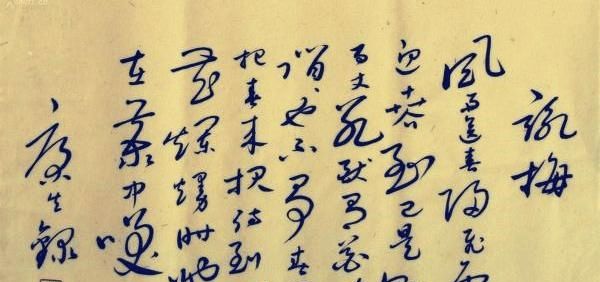 詠梅
风雨送春归飞雪
迎春到已是
百丈冰犹有花
俏也不争春
把春来报待到
花烂熳时她
在丛中笑